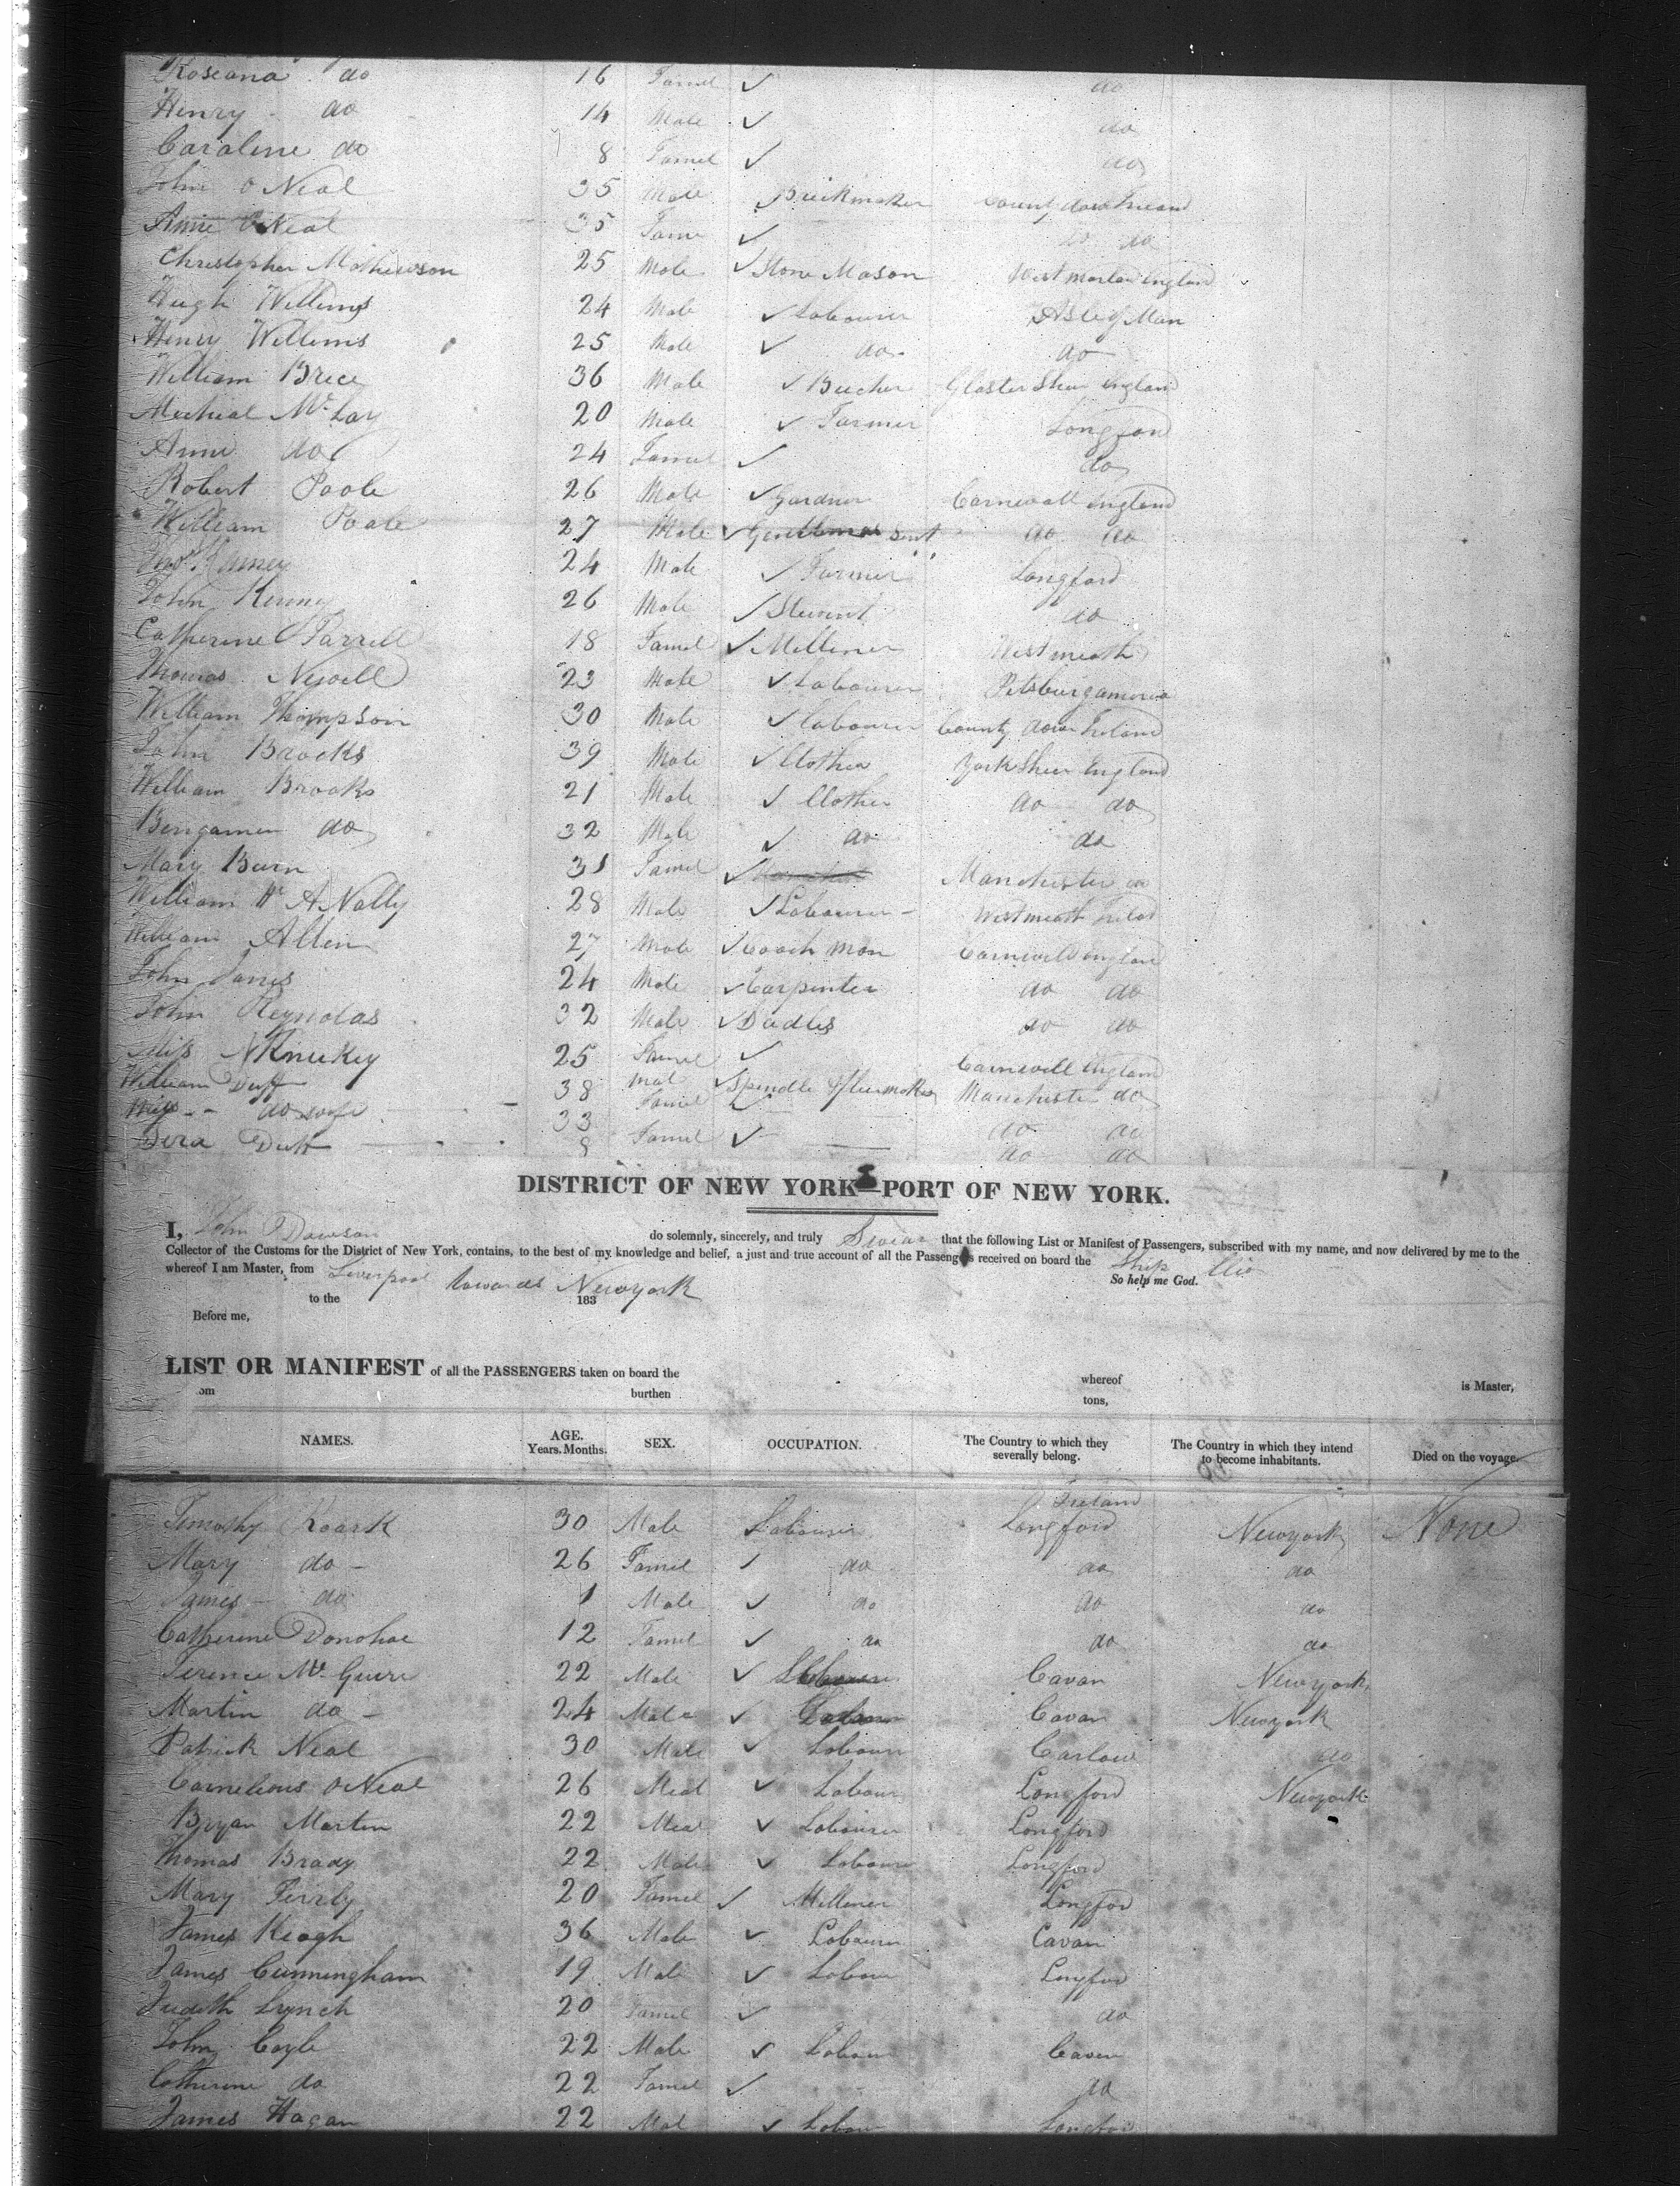 Roseana do 16 Famel ✓ do
Henry do 14 Male ✓ do
Caroline do 8 Famel ✓ do
John O Neal 35 Male ✓ Brickmaker County down Ireland
Anne O Neal 35 Fame ✓ do do
Christopher Mathewson 25 Male ✓ Stone Mason West morlan England
Hugh Willems 24 Male ✓ Labourer Asle of Man
Henry Willems 25 Male ✓ do do
William Brice 36 Male ✓ Bucher Gloster Shear England
Micheal Mc Lay 20 Male ✓ Farmer Longford
Anne do 24 Famel ✓ do
Robert Poole 26 Male ✓ Gardner Cornewall England
William Poole 27 Male ✓ do do
24 Male ✓ Farmer Longford
John Kenny 26 Male ✓ do
Catherine Farrell 18 Famel ✓ Milliner Westmeath
Thomas Newell 23 Male ✓ Labourer
William Thompson 30 Male ✓ Labourer County down Ireland
John Brooks 39 Male ✓ Clother York Shear England
William Brooks 21 Male ✓ Clother do do
Bengamen do 32 Male ✓ do do
Mary Burn 31 Famel ✓ Manchester
William Mc A Nally 28 Male ✓ Labourer Westmeath
William Allen 27 Male ✓ Coach man Cornwell England
John James 24 Male ✓ Carpenter do do
John Reynolds 32 Male ✓ do do
Miss 25 Famel ✓ Cornwell England
William Duff 38 Mal ✓ Spindle Manchester do
do wife 33 Famel ✓ do do
Duff 8 Famel ✓ do do
DISTRICT OF NEW YORK—PORT OF NEW YORK.
I, John Dawson do solemnly, sincerely, and truly Swear that the following List or Manifest of Passengers, subscribed with my name, and now delivered by me to the
Collector of the Customs for the District of New York, contains, to the best of my knowledge and belief, a just and true account of all the Passengers received on board the Ship Clio
whereof I am Master, from Liverpool towards Newyork So help me God.
to the 183
Before me,
LIST OR MANIFEST of all the PASSENGERS taken on board the whereof is Master,
om burthen tons,
NAMES. AGE. Years. Months. SEX. OCCUPATION. The Country to which they severally belong. The Country in which they intend to become inhabitants. Died on the voyage.
Ireland
Timothy Roark 30 Male Labourer Longford Newyork None
Mary do 26 Famel ✓ do do do
James do 1 Male ✓ do do do
Catherine Donohoe 12 Famel ✓ do do do
Terence Mc Guire 22 Male ✓ Labourer Cavan Newyork
Martin do 24 Male ✓ Labour Cavan Newyork
Patrick Neal 30 Male ✓ Labour Carlow do
Cornelious O Neal 26 Meal ✓ Labour Longford Newyork
Bryan Martin 22 Meal ✓ Labourer Longford
Thomas Brady 22 Male ✓ Labour Longford
Mary 20 Famel ✓ Milliner Longfor
James Keogh 36 Male ✓ Labourer Cavan
James Cunningham 19 Male ✓ Labour Longford
Judith Lynch 20 Famel ✓ do
John Coyle 22 Male ✓ Labour Caven
Catherine do 22 Famel ✓ do
James Hagan 22 Mal ✓ Labour Longford